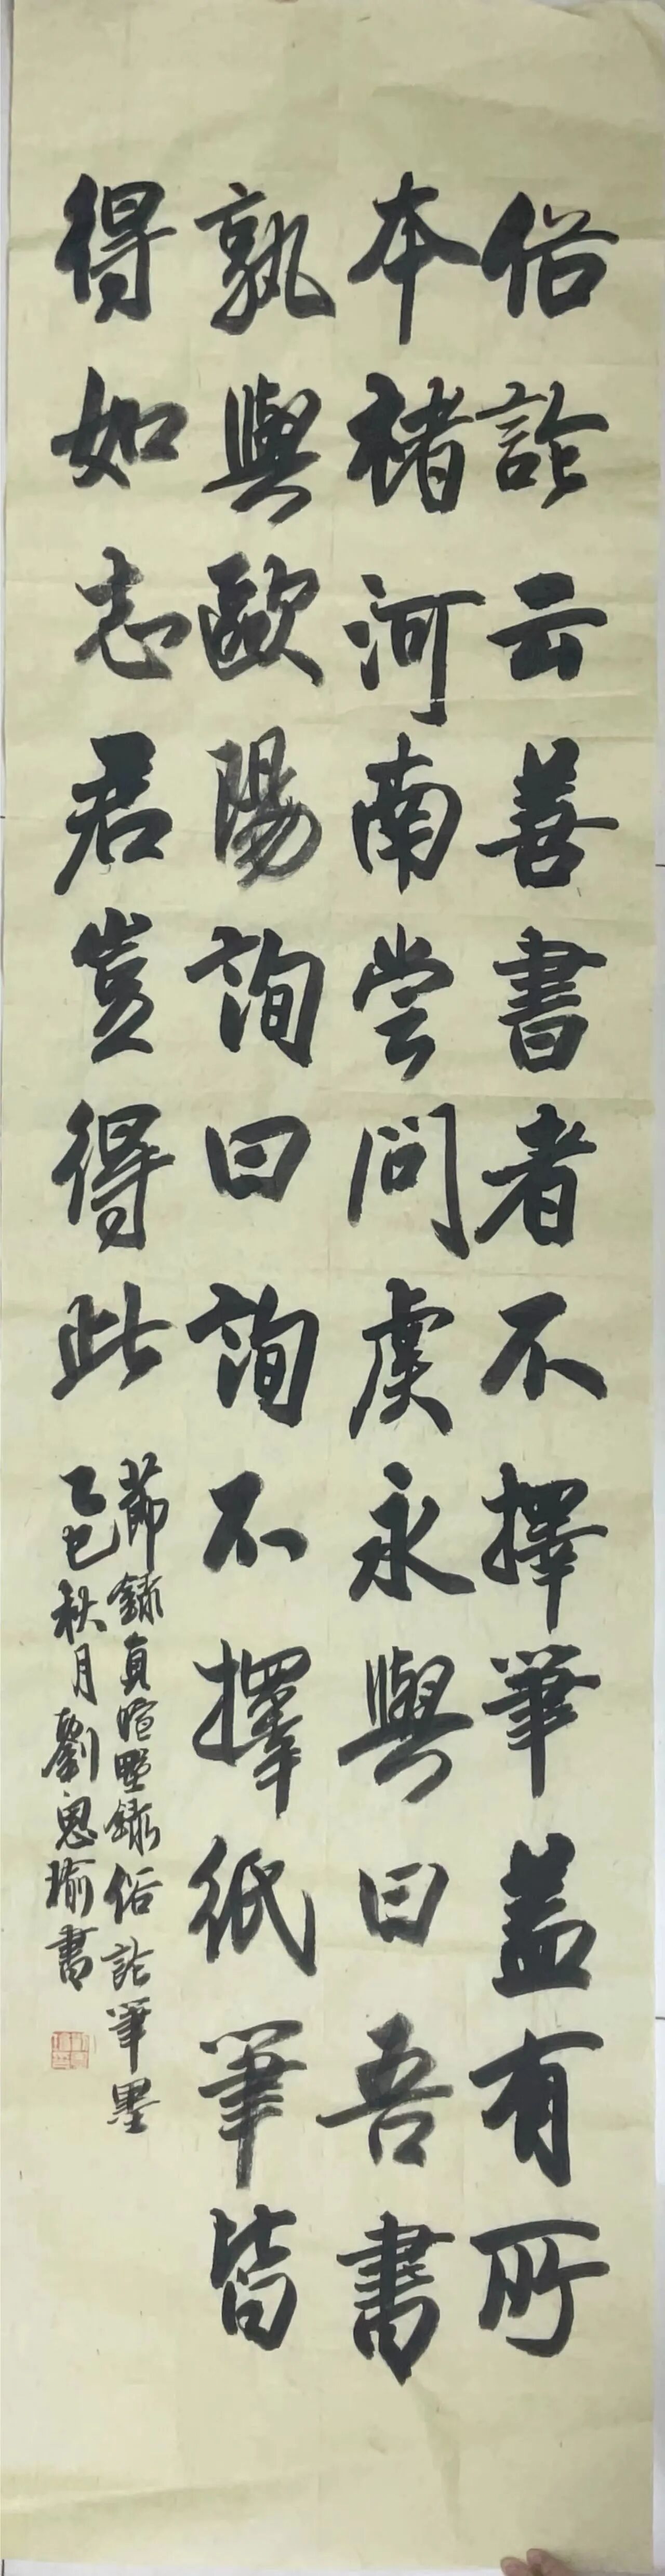 俗論云善書者不擇筆蓋有所
本褚河南嘗問虞永興曰吾書
孰與歐陽詢曰詢不擇紙筆皆
得如志君豈得此
節錄負暄野錄俗論筆墨
乙巳秋月劉思瑜書